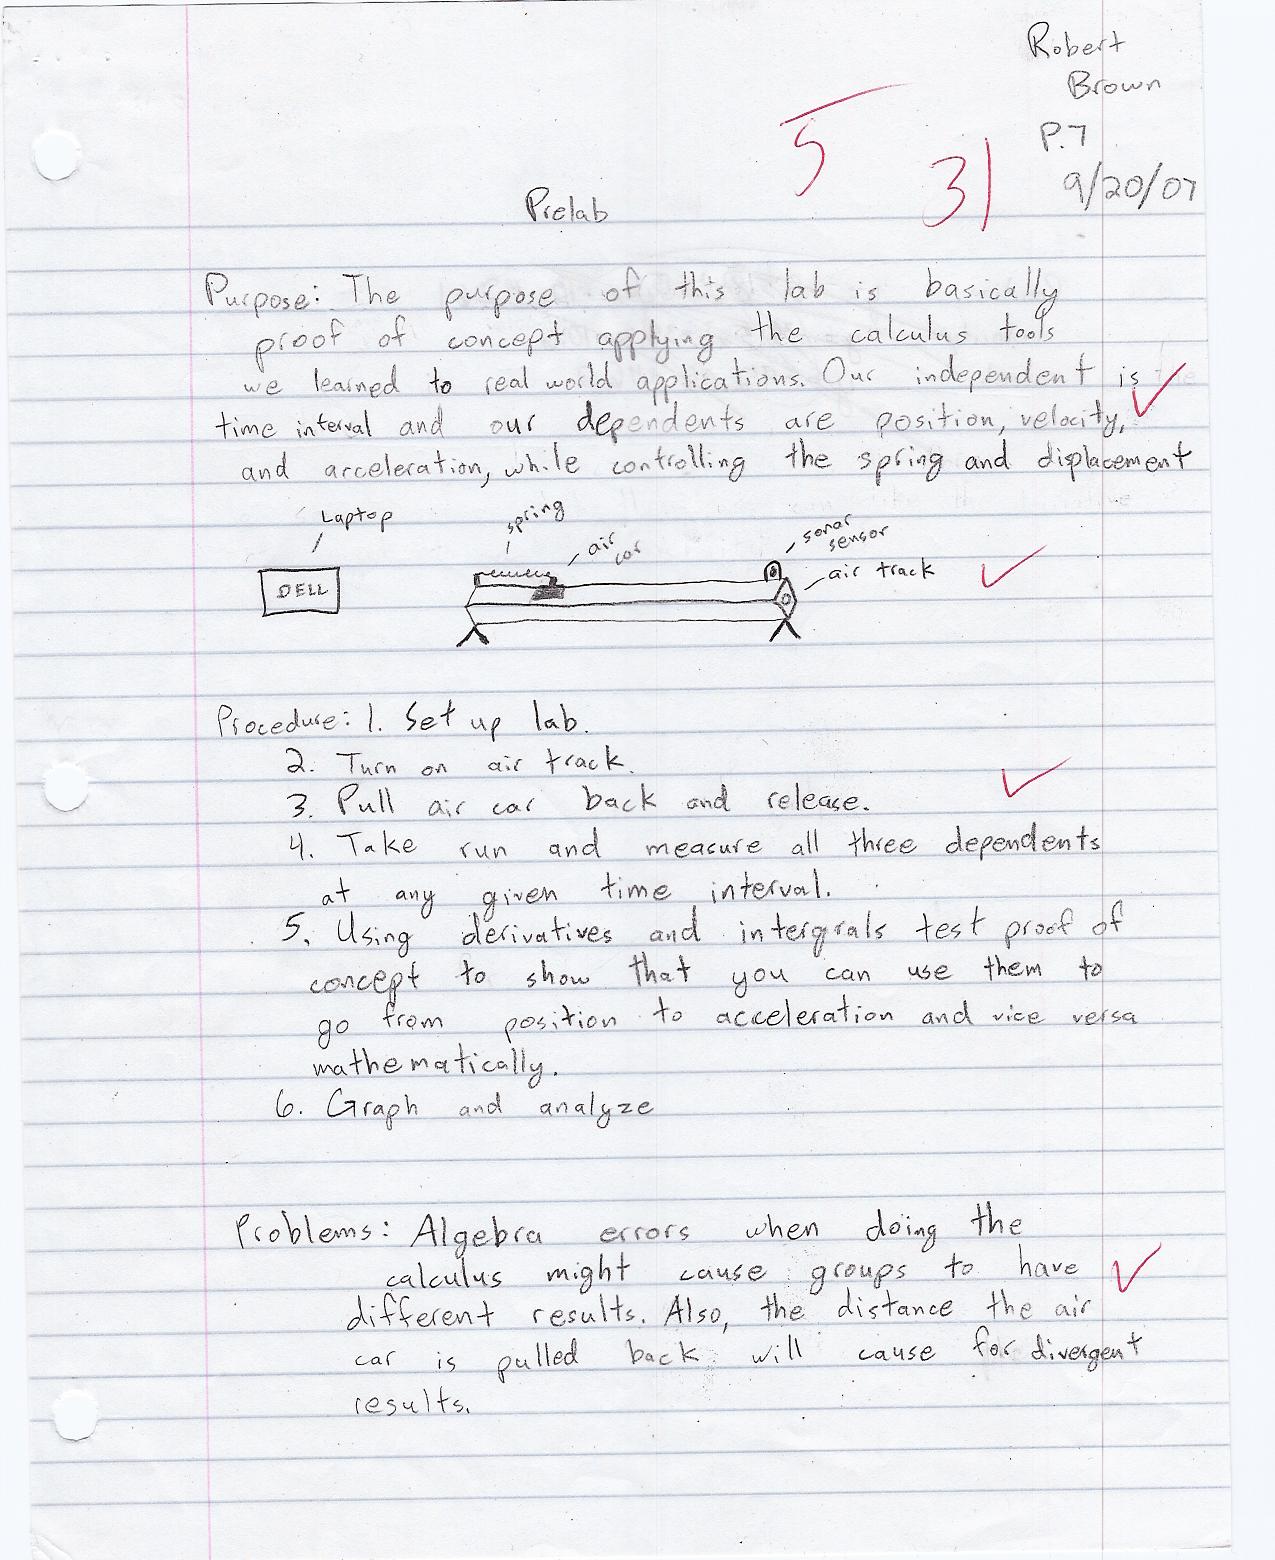 Robert
Brown
P.7
9/20/07
5
31
Prelab
Purpose: The purpose of this lab is basically
proof of concept applying the calculus tools
we learned to real world applications. Our independent is
time interval and our dependents are position, velocity,
and acceleration, while controlling the spring and displacement
Laptop
spring
air
car
sonar
sensor
air track
DELL
Procedure: 1. Set up lab.
2. Turn on air track.
3. Pull air car back and release.
4. Take run and measure all three dependents
at any given time interval.
5. Using derivatives and intergrals test proof of
concept to show that you can use them to
go from position to acceleration and vice versa
mathematically.
6. Graph and analyze
Problems: Algebra errors when doing the
calculus might cause groups to have
different results. Also, the distance the air
car is pulled back will cause for divergent
results.